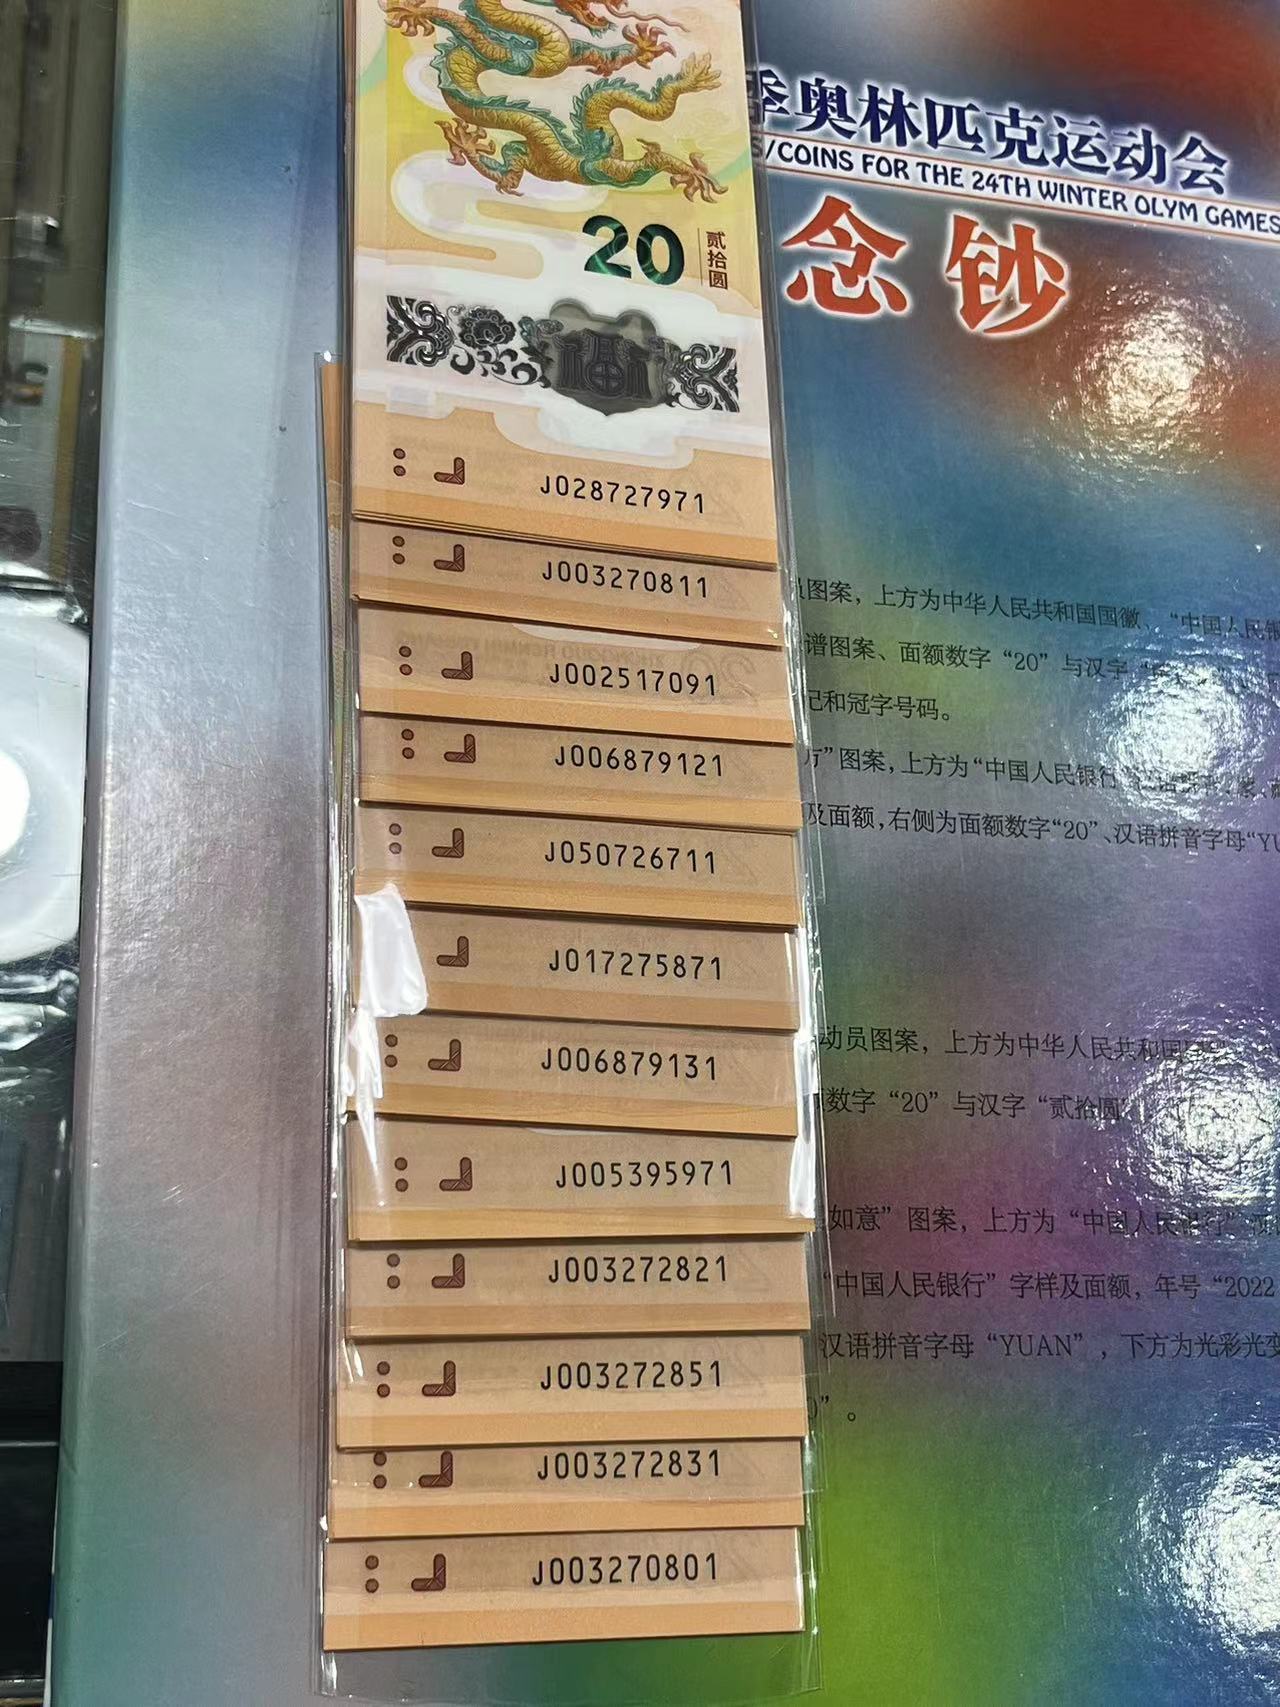 季奥林匹克运动会
S/COINS FOR THE 24TH WINTER OLYM GAMES
念钞
20
贰拾圆
福
J028727971
J003270811
J002517091
J006879121
J050726711
J017275871
J006879131
J005395971
J003272821
J003272851
J003272831
J003270801
员图案，上方为中华人民共和国国徽、“中国人民银
谱图案、面额数字“20”与汉字
记和冠字号码。
方”图案，上方为“中国人民银行
及面额，右侧为面额数字“20”、汉语拼音字母“YU
动员图案，上方为中华人民共和国
数字“20”与汉字“贰拾圆”
如意”图案，上方为“中国人民银行”
“中国人民银行”字样及面额，年号“2022
汉语拼音字母“YUAN”，下方为光彩光变
0”。